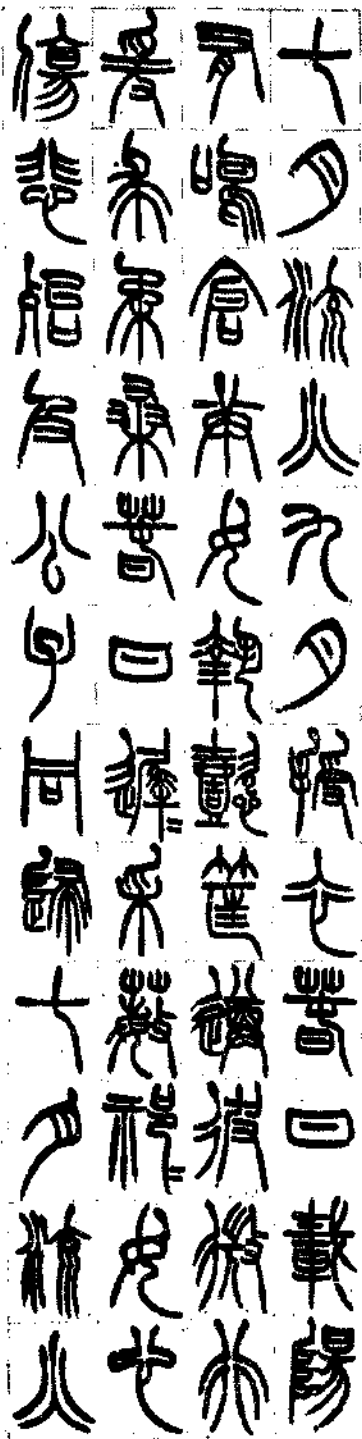 七月流火九月授衣春日載陽
有鳴倉庚女執懿筐遵彼微行
爰求柔桑春日遲〻采蘩祁〻女心
傷悲殆及公子同歸七月流火